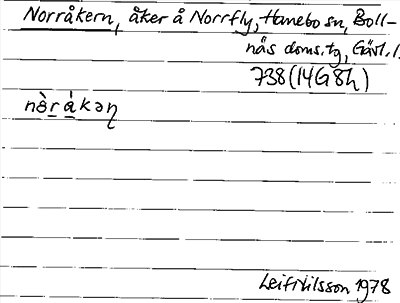 Norråkern, åker å Norrfly, Hanebo sn, Boll-
näs doms.tg, Gävl. l.
738 (14G8h)
nò̱rá̱kəɳ
Leif Nilsson 1978